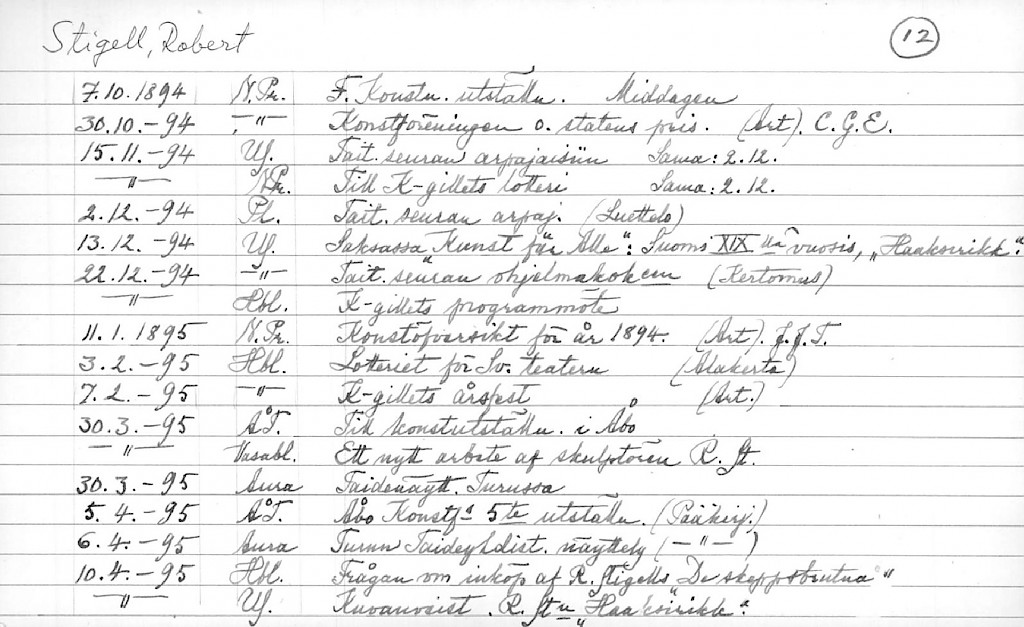 Stigell, Robert
12
7.10.1894 N.Pr. F. Konstn. utställn. Middagen
30.10.-94 -"- Konstföreningen o. statens pris. (Art). C.G.E.
15.11.-94 Us. Tait. seuran arpajaisiin Sama: 2.12.
-"- N.Pr. Till K-gillets lotteri Sama: 2.12.
2.12.-94 Pl. Tait. seuran arpaj. (Luettelo)
13.12.-94 Us. Saksassa "Kunst für Alle": Suomi XIX llä vuosis, "Haaksirikk."
22.12.-94 -"- Tait. seuran ohjelmakokem (Kertomus)
-"- Hbl. K-gillets programmöte
11.1.1895 N.Pr. Konstöfversikt för år 1894. (Art). J.J.T.
3.2.-95 Hbl. Lotteriet för Sv. teatern (Alakerta)
7.2.-95 -"- K-gillets årsfest (Art.)
30.3.-95 ÅT. Till konstutställn. i Åbo
-"- Vasabl. Ett nytt arbete af skulptören R. St.
30.3.-95 Aura Taidenäytt. Turussa
5.4.-95 ÅT. Åbo Konstfs 5te utställn. (Pääkirj.)
6.4.-95 Aura Turun Taideyhdist. näyttely (-"-)
10.4.-95 Hbl. Frågan om inköp af R. Stigells "De skeppsbrutna"
-"- Us. Kuvanveist. R. St:n "Haaksirikk."